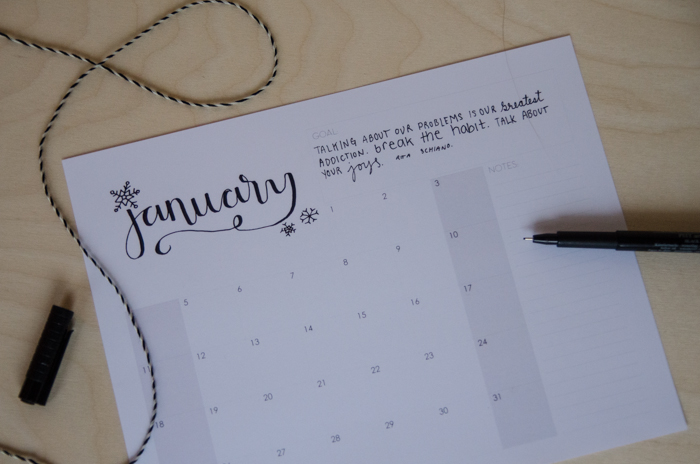 GOAL
TALKING ABOUT OUR PROBLEMS IS OUR greatest
ADDICTION. break the habit. TALK ABOUT
YOUR joys. RITA SCHIANO.
january
NOTES
1 2 3
5 6 7 8 9 10
11 12 13 14 15 16 17
18 19 20 21 22 23 24
27 28 29 30 31